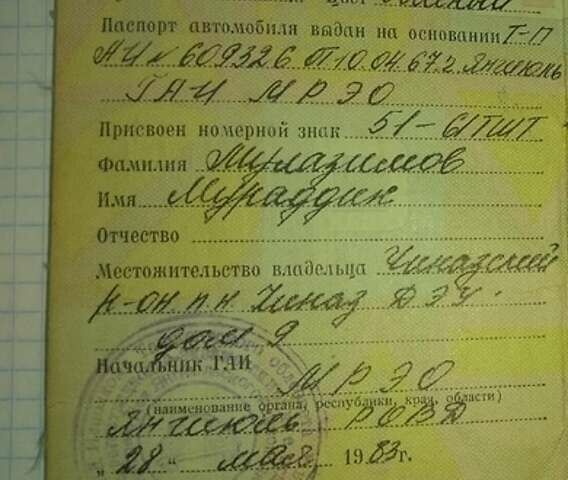 Паспорт автомобиля выдан на основании Т-П
АИ № 609326 от 10.04.67 г. Янгиюль
ГАИ МРЭО
Присвоен номерной знак 51-61 ТШТ
Фамилия Мулазимов
Имя Мураддик
Отчество
Местожительство владельца Чиназский
р-он п.н. Чиназ ДЭУ
дом 9
Начальник ГАИ
МРЭО
(наименование органа, республики, края, области)
Янгиюль РОВД
"28" мая 1983 г.